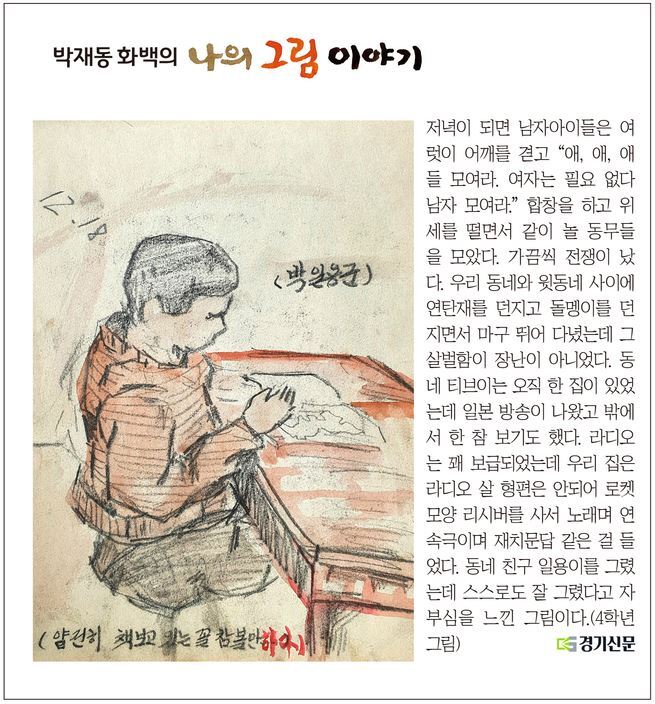 박재동 화백의 나의 그림 이야기
저녁이 되면 남자아이들은 여
럿이 어깨를 겯고 “애, 애, 애
들 모여라. 여자는 필요 없다
남자 모여라.” 합창을 하고 위
세를 떨면서 같이 놀 동무들
을 모았다. 가끔씩 전쟁이 났
다. 우리 동네와 윗동네 사이에
연탄재를 던지고 돌멩이를 던
지면서 마구 뛰어 다녔는데 그
살벌함이 장난이 아니었다. 동
네 티브이는 오직 한 집이 있었
는데 일본 방송이 나왔고 밖에
서 한 참 보기도 했다. 라디오
는 꽤 보급되었는데 우리 집은
라디오 살 형편은 안되어 로켓
모양 리시버를 사서 노래며 연
속극이며 재치문답 같은 걸 들
었다. 동네 친구 일용이를 그렸
는데 스스로도 잘 그렸다고 자
부심을 느낀 그림이다.(4학년
그림)
경기신문
12.18
(박일용군)
(얌전히 책보고 있는 꼴 참 볼만하다)